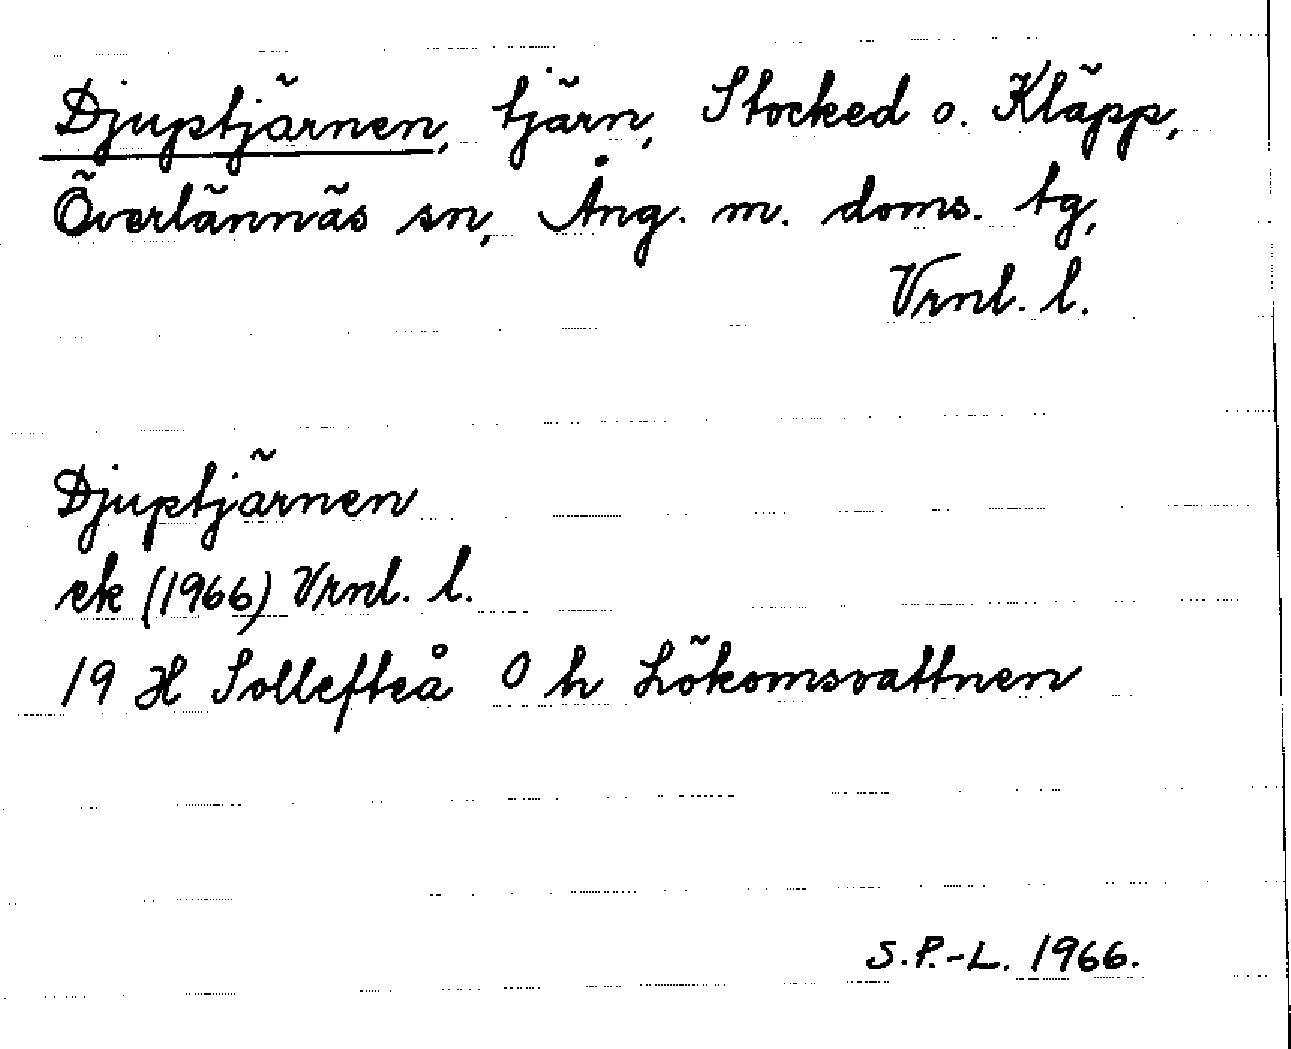 Djuptjärnen, tjärn, Stocked o. Kläpp,
Överlännäs sn, Ång. m. doms. tg,
Vrnl. l.
Djuptjärnen
ek (1966) Vrnl. l.
19 H Sollefteå 0 h Lökomsvattnen
S.P.-L. 1966.